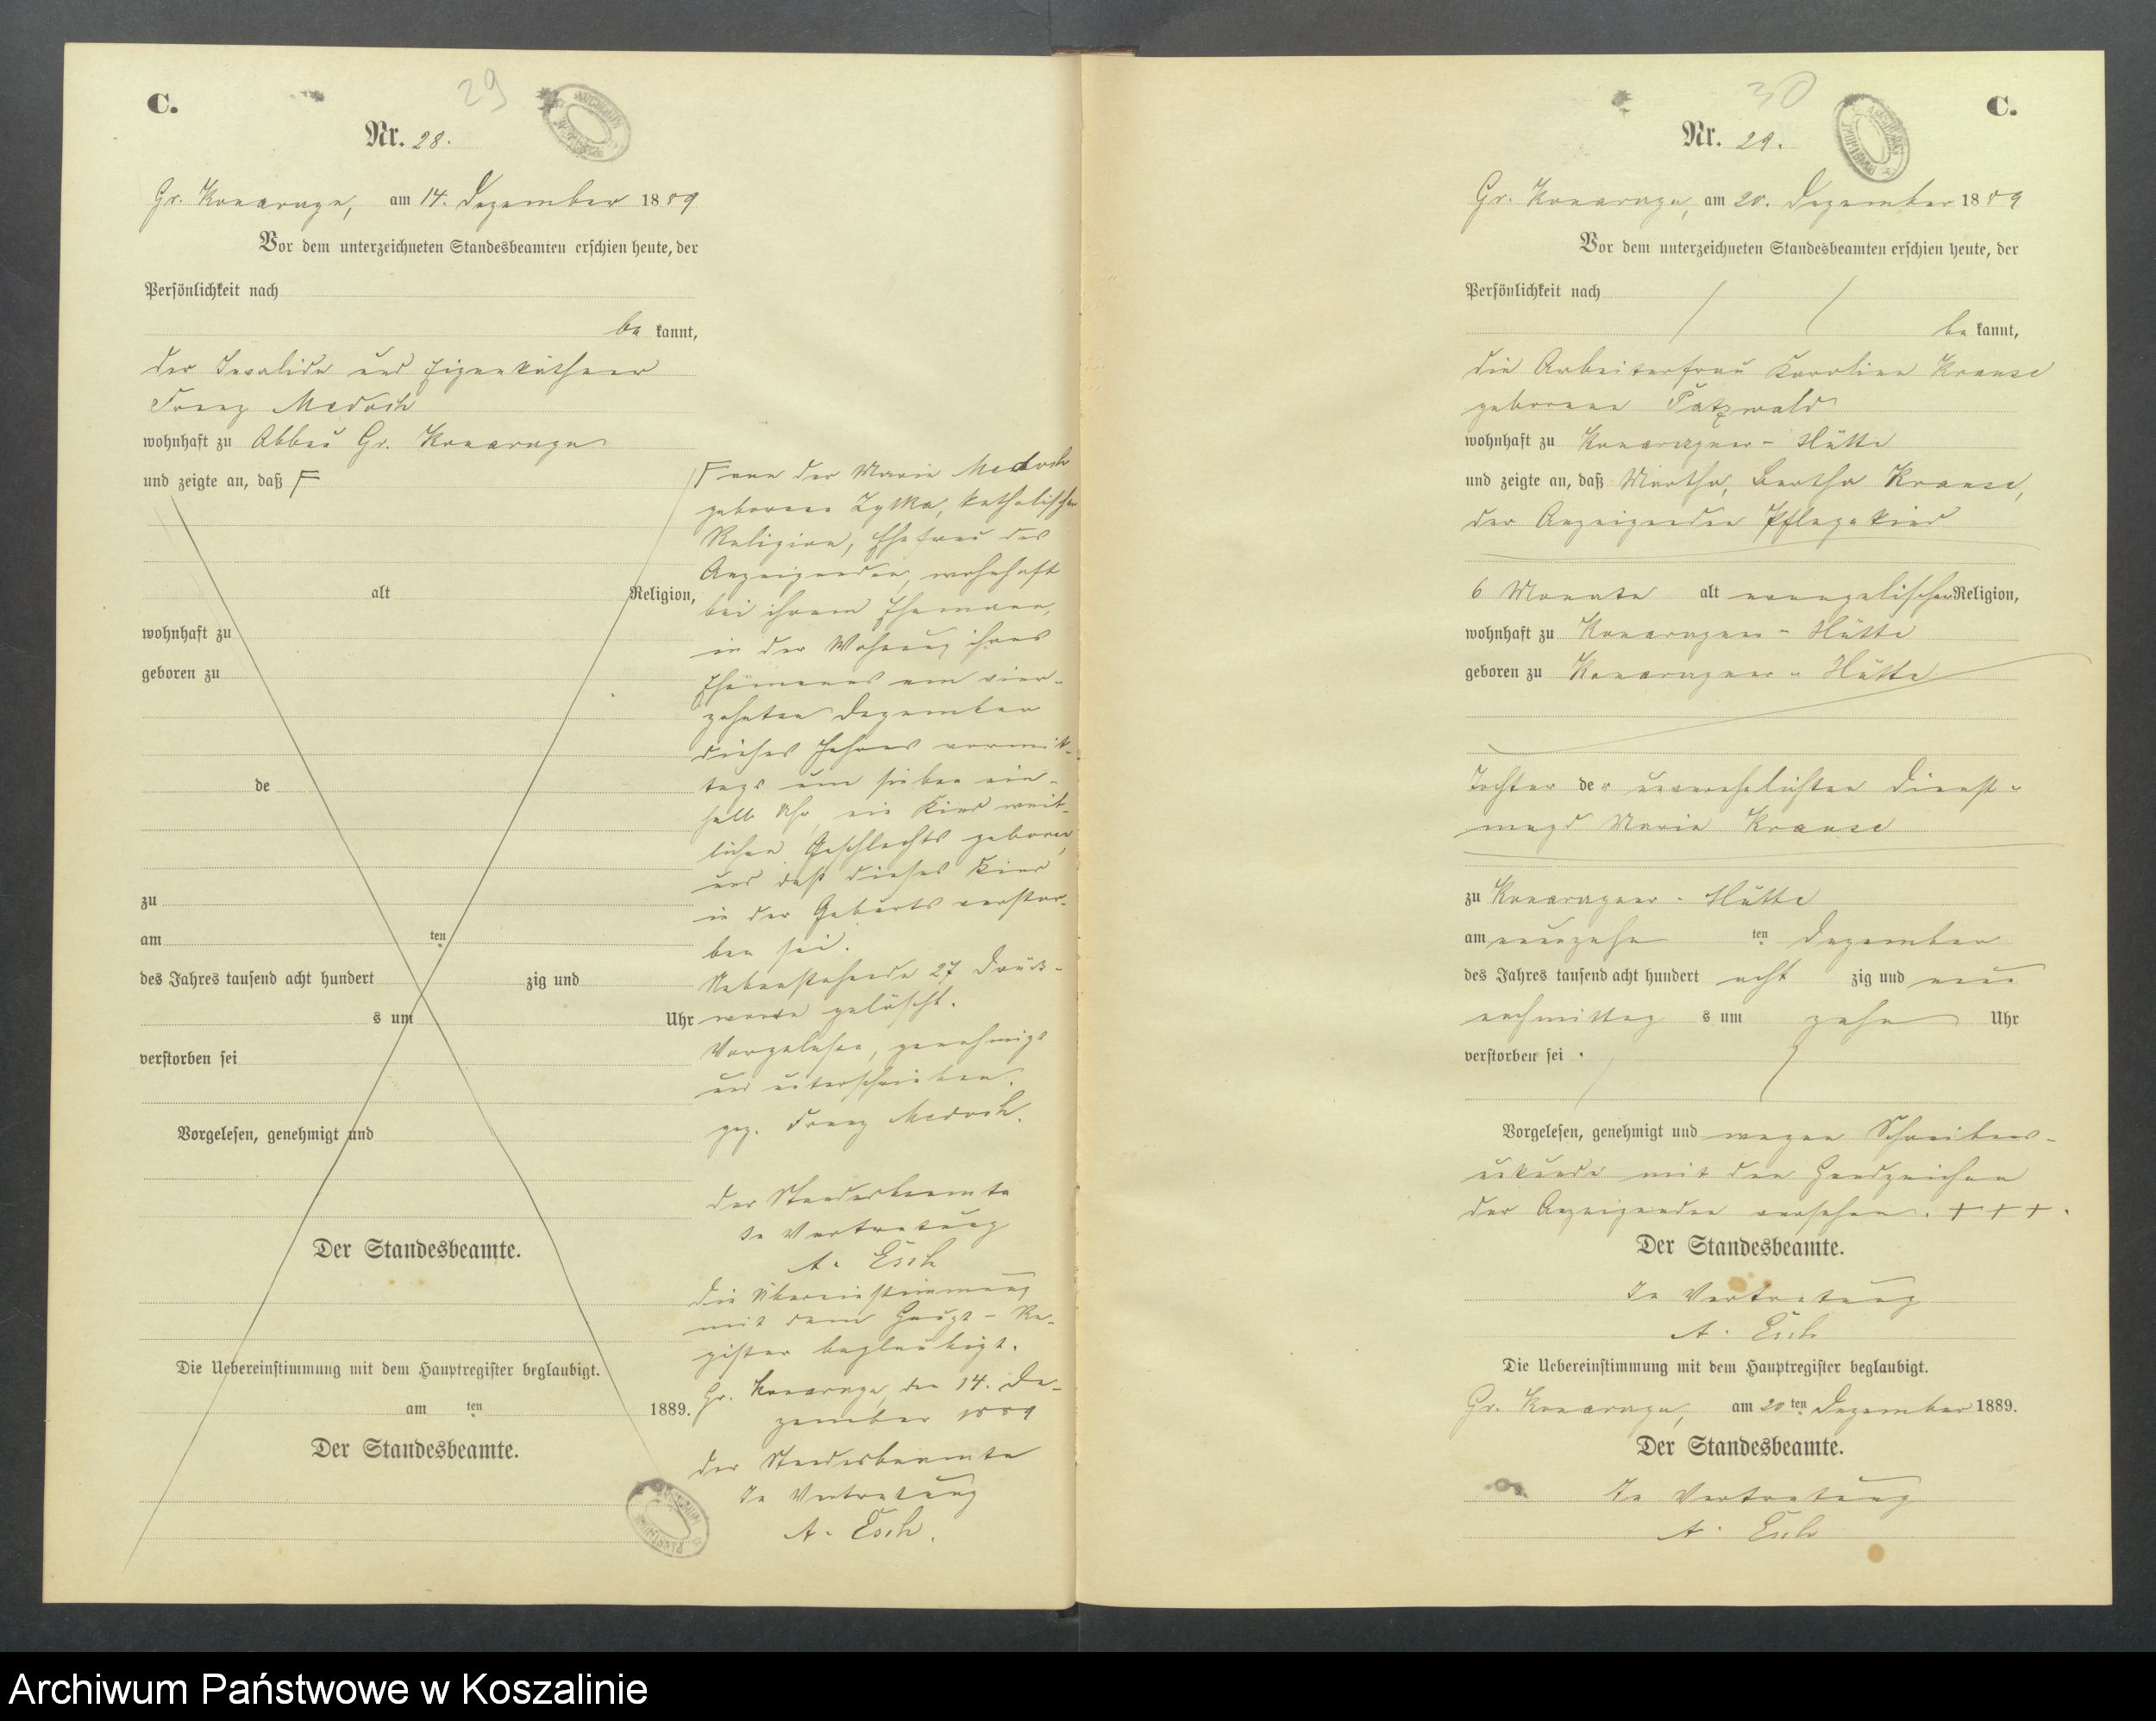 C.
29
Nr. 28.
Gr. Konarzyn, am 14. Dezember 1889
Vor dem unterzeichneten Standesbeamten erschien heute, der
Persönlichkeit nach
be kannt,
der Invalide und Eigenkäthner
Franz Medoch
wohnhaft zu Abbau Gr. Konarzyn
und zeigte an, daß Γ
alt Religion,
wohnhaft zu
geboren zu
de
zu
am ten
des Jahres tausend acht hundert zig und
s um Uhr
verstorben sei
Vorgelesen, genehmigt und
Der Standesbeamte.
Die Uebereinstimmung mit dem Hauptregister beglaubigt.
am ten 1889.
Der Standesbeamte.
Γ von der Marie Medoch
geborene Zylka, katholischer
Religion, Ehefrau des
Anzeigenden, wohnhaft
bei ihrem Ehemann,
in der Wohnung ihres
Ehemannes am vier-
zehnten Dezember
dieses Jahres vormit-
tags um sieben ein-
halb Uhr, ein Kind weib-
lichen Geschlechts geboren,
und daß dieses Kind
in der Geburt verstor-
ben sei.
Nebenstehende 27 Druck-
worte gelöscht.
Vorgelesen, genehmigt
und unterschrieben.
gez. Franz Medoch.
Der Standesbeamte
In Vertretung
A. Esch
Die Übereinstimmung
mit dem Haupt-Re-
gister beglaubigt.
Gr. Konarzyn, den 14. De-
zember 1889
Der Standesbeamte
In Vertretung
A. Esch.
C.
30
Nr. 29.
Gr. Konarzyn, am 20. Dezember 1889
Vor dem unterzeichneten Standesbeamten erschien heute, der
Persönlichkeit nach
be kannt,
die Arbeiterfrau Karoline Krause
geborene Patzwald
wohnhaft zu Konarzyner-Hütte
und zeigte an, daß Martha, Bertha Krause,
der Anzeigenden Pflegekind
6 Monate alt evangelischer Religion,
wohnhaft zu Konarzyner-Hütte
geboren zu Konarzyner-Hütte
Tochter der unverehelichten Dienst-
magd Maria Krause
zu Konarzyner-Hütte
am neunzehn ten Dezember
des Jahres tausend acht hundert acht zig und neun
nachmittag s um zehn Uhr
verstorben sei.
Vorgelesen, genehmigt und wegen Schreibens-
unkunde mit den Handzeichen
der Anzeigenden versehen. + + +.
Der Standesbeamte.
In Vertretung
A. Esch
Die Uebereinstimmung mit dem Hauptregister beglaubigt.
Gr. Konarzyn, am 20 ten Dezember 1889.
Der Standesbeamte.
In Vertretung
A. Esch
Archiwum Państwowe w Koszalinie